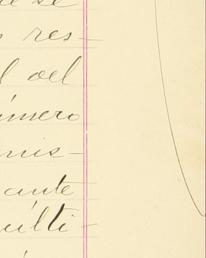 se
res-
l del
úmero
mis-
ante
ulti-